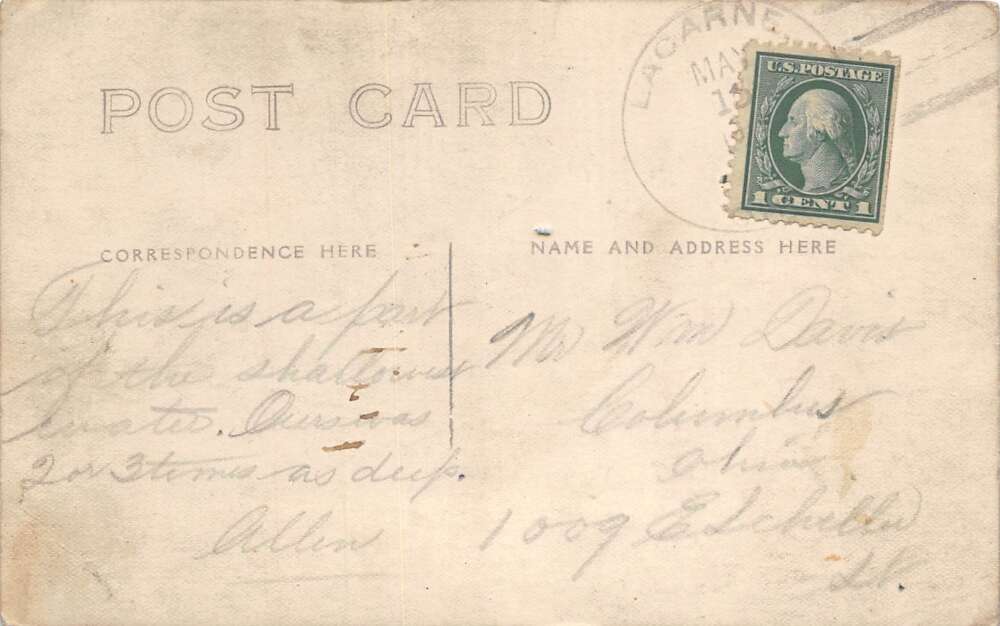 POST CARD
LACARNE
MAY
13
U.S. POSTAGE
1 CENT 1
CORRESPONDENCE HERE
NAME AND ADDRESS HERE
This is a part
of the shallowest
water. Ours was
2 or 3 times as deep.
Allen
Mr Wm Davis
Columbus
Ohio
1009 E Schiller
St.